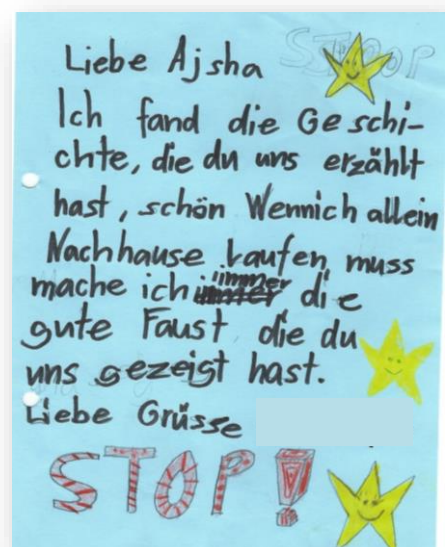 STOOP
Liebe Ajsha
Ich fand die Geschi-
chte, die du uns erzählt
hast, schön Wennich allein
Nachhause Laufen muss
mache ich immer die
gute Faust die du
uns gezeigt hast.
Liebe Grüsse
STOP!